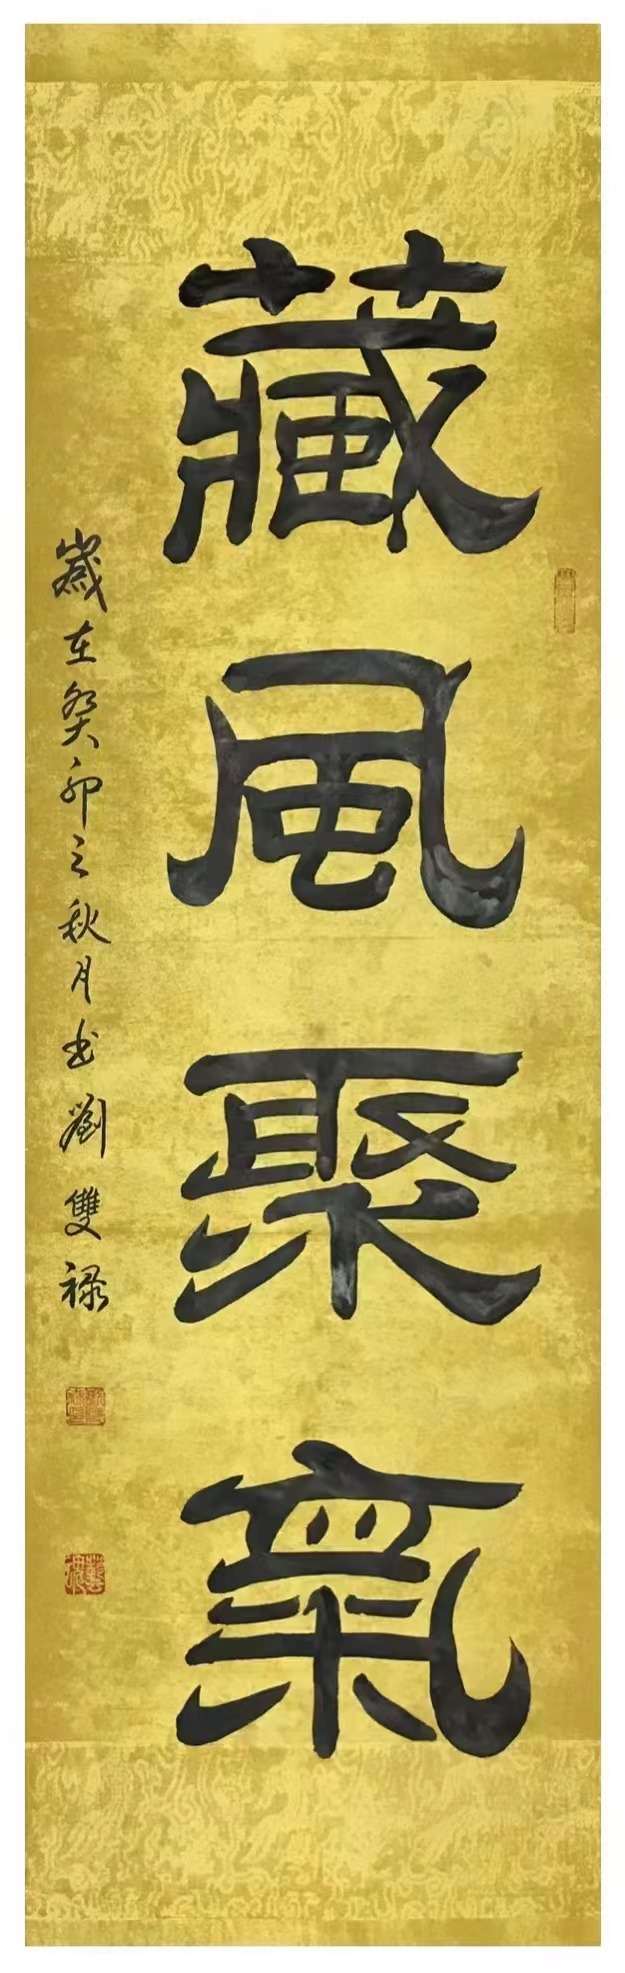 藏風聚氣
歲在癸卯之秋月书劉雙禄